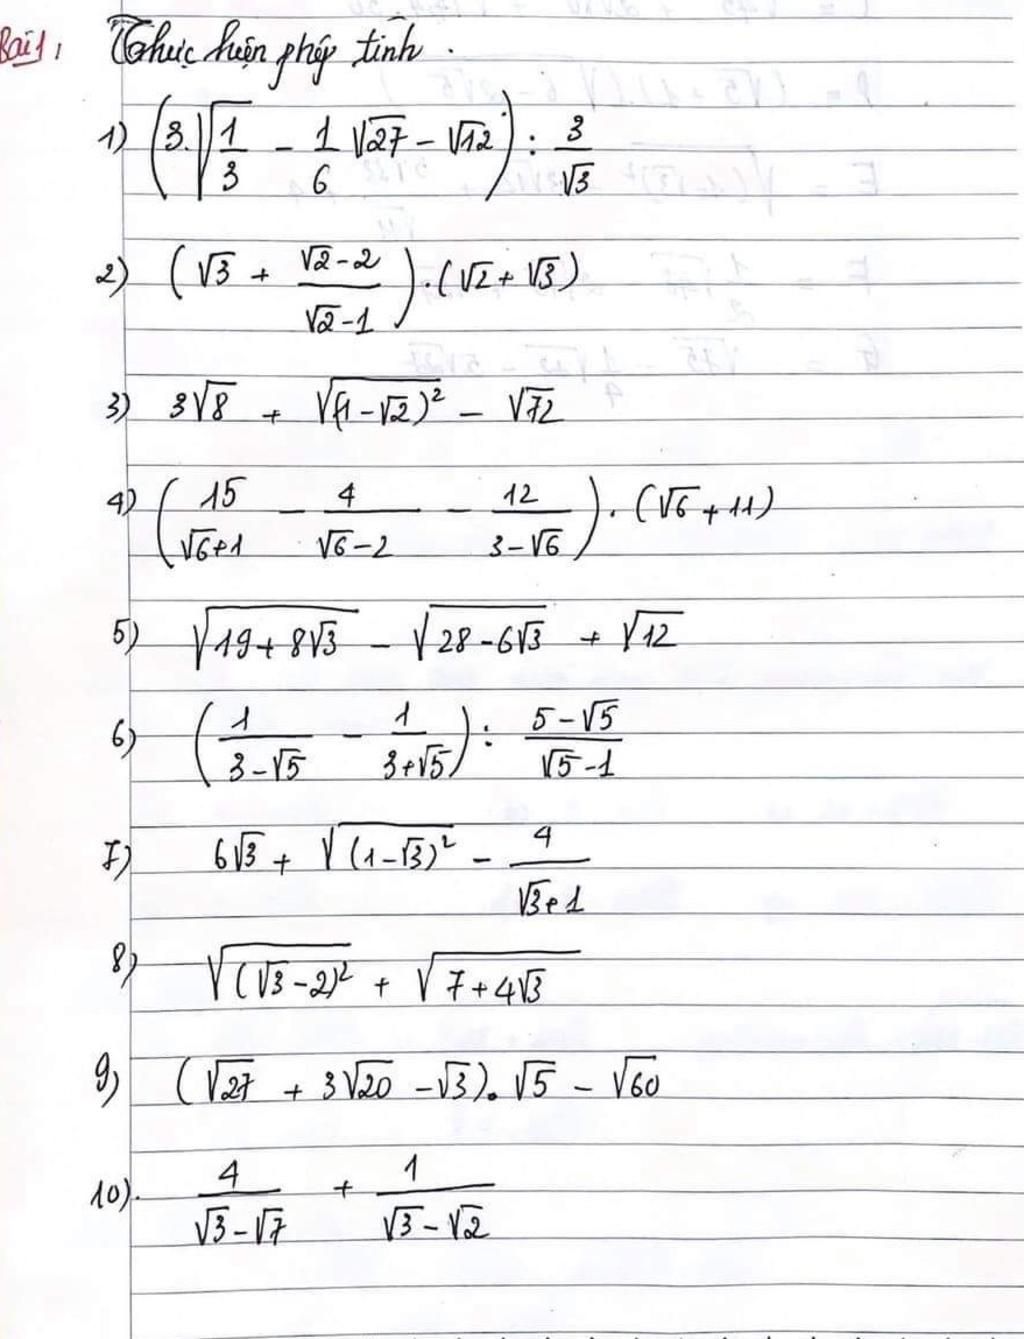 Bài 1: Thực hiện phép tính.
1) (3.√(1/3) - 1/6 √27 - √12) : 3/√3
2) (√3 + (√2-2)/(√2-1)).(√2+√3)
3) 3√8 + √((1-√2)²) - √72
4) (15/(√6+1) - 4/(√6-2) - 12/(3-√6)).(√6+11)
5) √(19+8√3) - √(28-6√3) + √12
6) (1/(3-√5) - 1/(3+√5)) : (5-√5)/(√5-1)
7) 6√3 + √((1-√3)²) - 4/(√3+1)
8) √((√3-2)²) + √(7+4√3)
9) (√27 + 3√20 - √3).√5 - √60
10). 4/(√3-√7) + 1/(√3-√2)